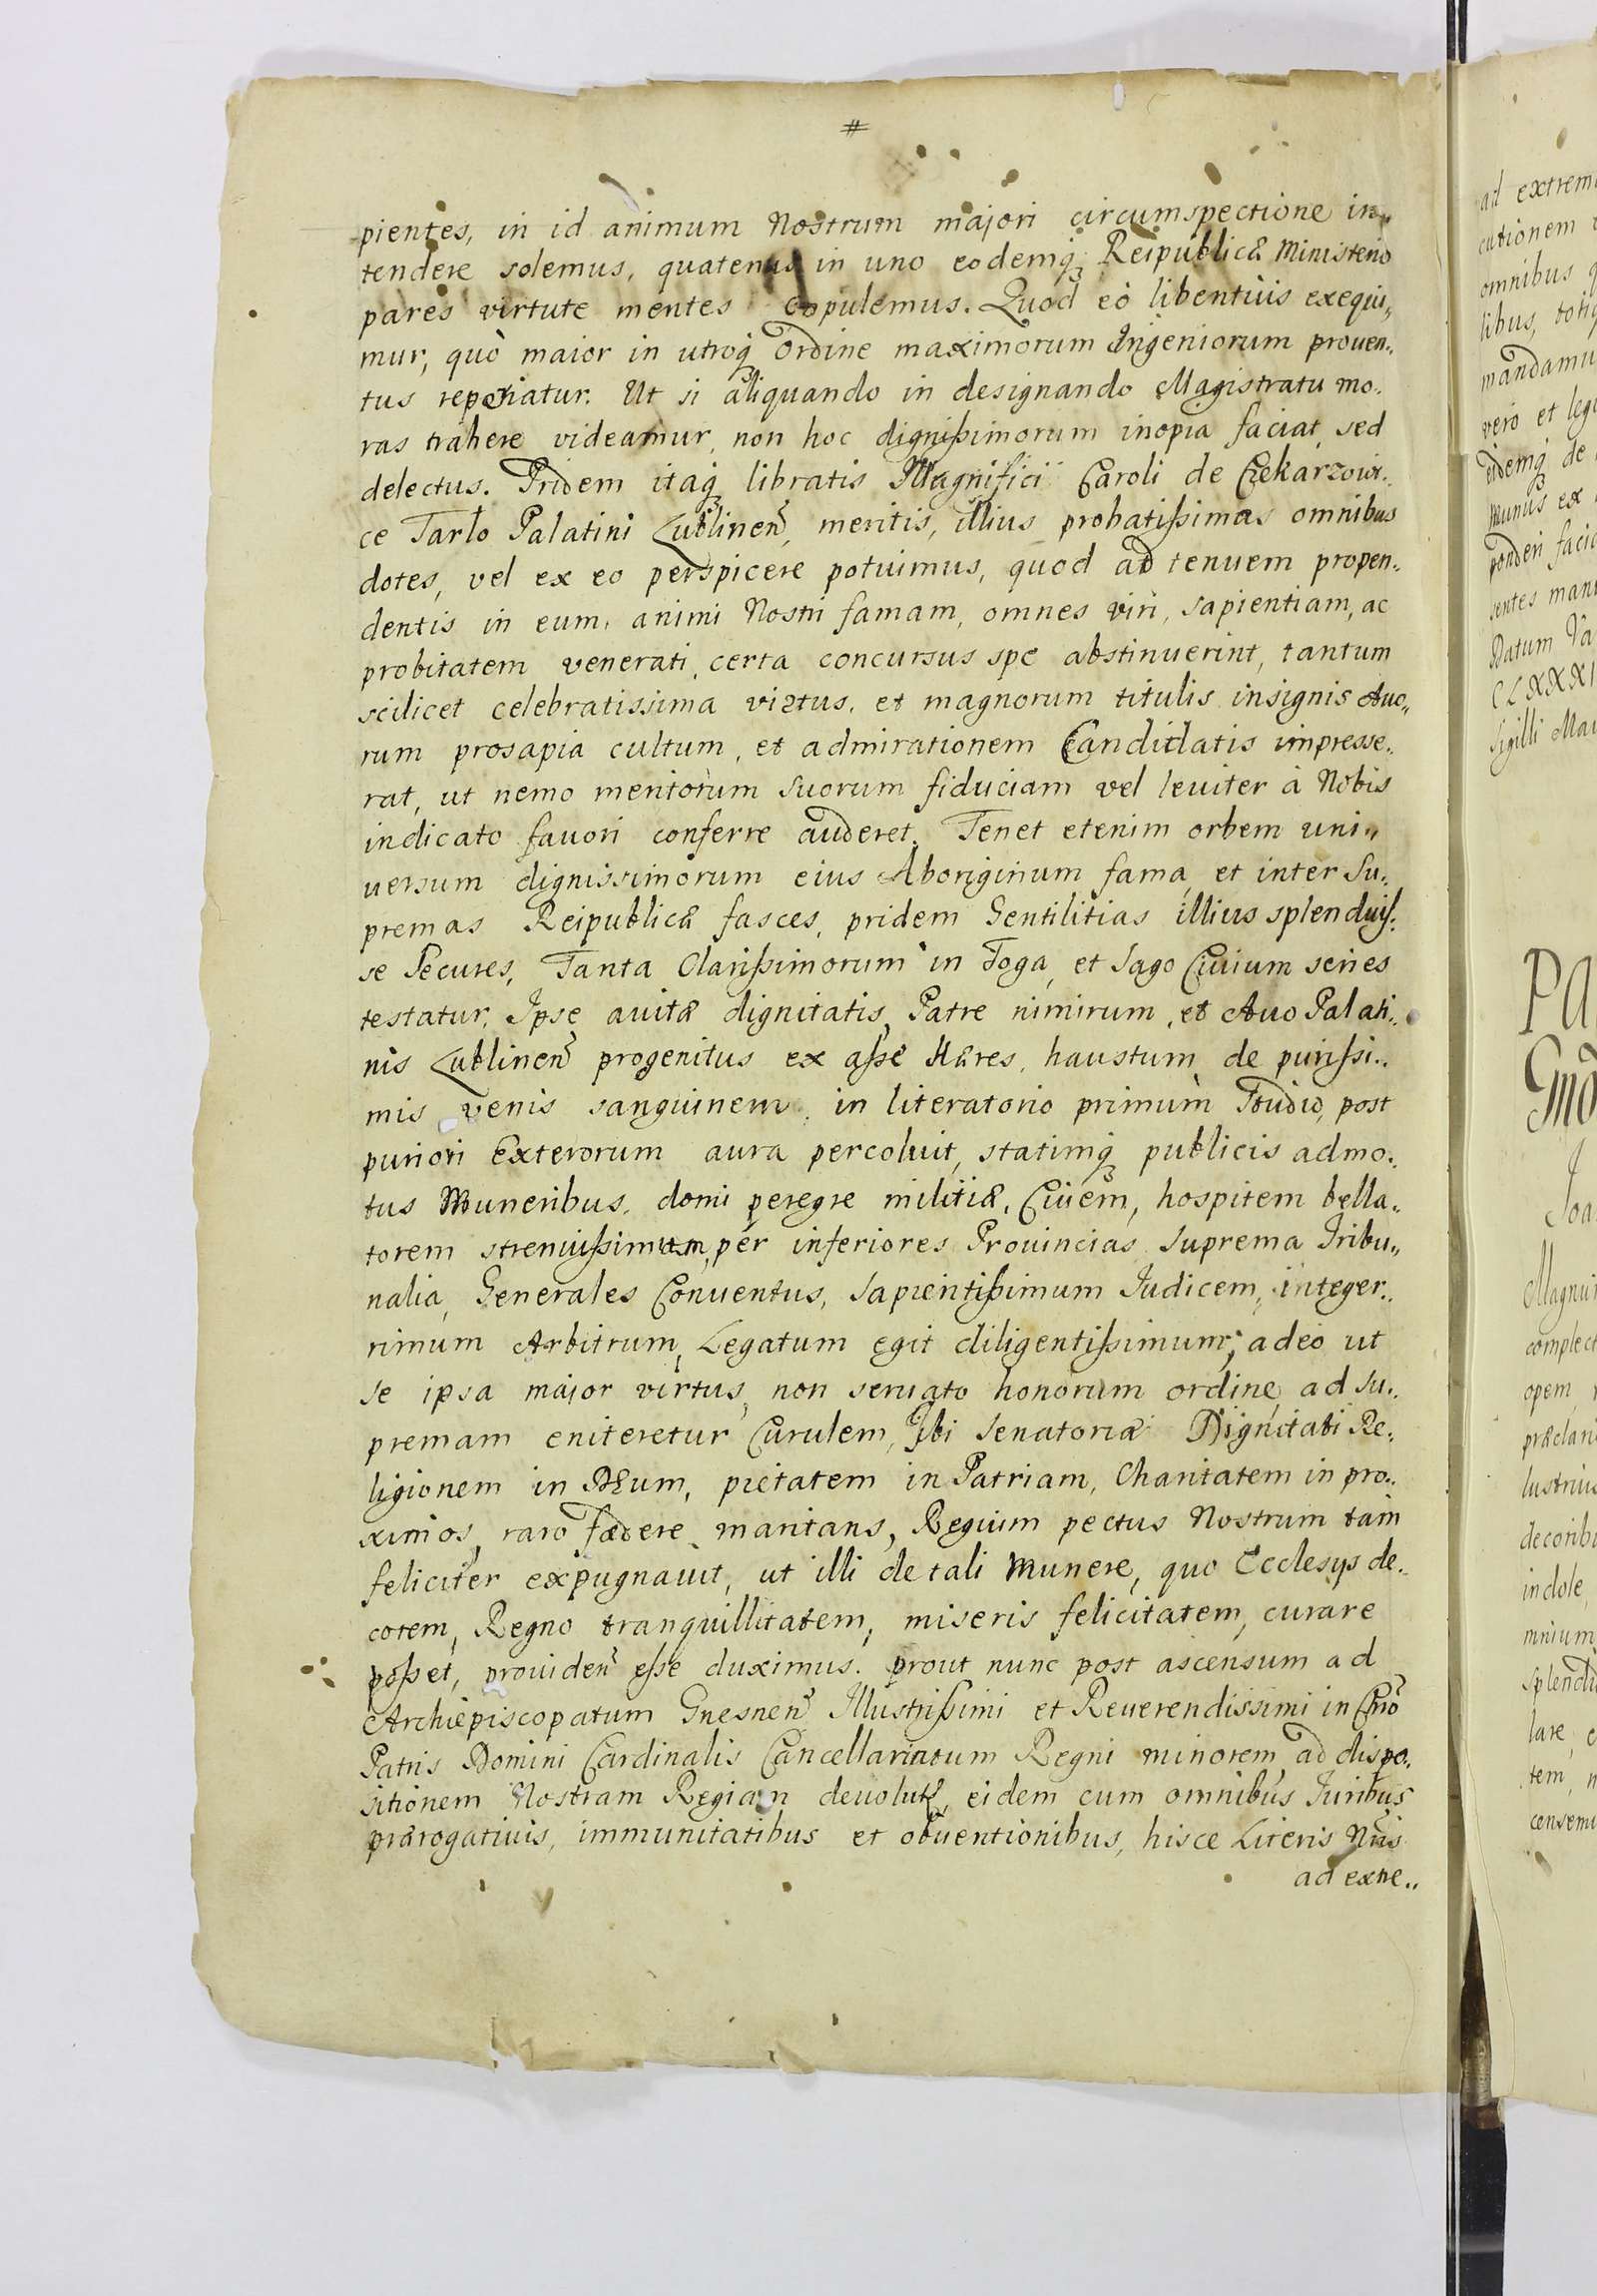 #
pientes, in id animum Nostrum majori circumspectione in„
tendere solemus, quatenus in uno eodemq; Reipublicæ Ministerio
pares virtute mentes copulemus. Quod eò libentiùs exequi„
mur, quò maior in utroq; Ordine maximorum Ingeniorum prouen„
tus reperiatur. Ut si aliquando in designando Magistratu mo„
ras trahere videamur, non hoc dignißimorum inopia faciat, sed
delectus. Pridem itaq; libratis Magnifici Caroli de Czekarzowi„
ce Tarlo Palatini Lublinen̄, meritis, illius probatißimas omnibus
dotes, vel ex eo perspicere potuimus, quod ad tenuem propen„
dentis in eum, animi Nostri famam, omnes viri, sapientiam, ac
probitatem venerati, certa concursus spe abstinuerint, tantum
scilicet celebratissima virtus, et magnorum titulis insignis Auo„
rum prosapia cultum, et admirationem Candidatis impresse„
rat, ut nemo meritorum suorum fiduciam vel leuiter à Nobis
indicato fauori conferre auderet. Tenet etenim orbem uni„
uersum dignissimorum eius Aboriginum fama, et inter Su„
premas Reipublicæ fasces, pridem Gentilitias illius splenduis„
se Secures, Tanta Clarißimorum in Toga, et Sago Ciuium series
testatur. Ipse auitæ dignitatis, Patre nimirum, et Auo Palati„
nis Lublinen̄ progenitus ex aße Hæres, haustum de purißi„
mis venis sanguinem, in literatorio primùm Studio, post
puriori Exterorum aura percoluit, statimq; publicis admo„
tus Muneribus, domi peregre militiæ, Ciuem, hospitem bella„
torem strenuißimum, per inferiores Prouincias Suprema Tribu„
nalia, Generales Conuentus, Sapientißimum Judicem, integer„
rimum Arbitrum, Legatum egit diligentißimum, adeò ut
se ipsa maior virtus, non seruato honorum ordine, ad su„
premam eniteretur Curulem, Ibi Senatoriæ Dignitati Re„
ligionem in DEum, pietatem in Patriam, Charitatem in pro„
ximos, raro fœdere maritans, Regium pectus Nostrum tam
feliciter expugnauit, ut illi de tali Munere, quo Ecclesijs de„
corem, Regno tranquillitatem, miseris felicitatem, curare
poßet, prouiden̄ eße duximus. prout nunc post ascensum ad
Archiepiscopatum Gnesnen̄ Illustrißimi et Reuerendissimi in Chrō
Patris Domini Cardinalis Cancellariatum Regni minorem, ad dispo„
sitionem Nostram Regiam deuolutū, eidem cum omnibus Juribus
prærogatiuis, immunitatibus et obuentionibus, hisce Literis Nr̄is
ad extre„
ad extrem
cutionem
omnibus q
libus, totiq
mandamu
vero et leg
eidemq; de
munus ex
ponderi faci
sentes man
Datum Va
CLXXXI
Sigilli Mai
Pa
Gnō
Joa
Magnu
complect
opem
præclari
lustrius
decorib
indole,
mnium
splendi
lare,
tem,
censem